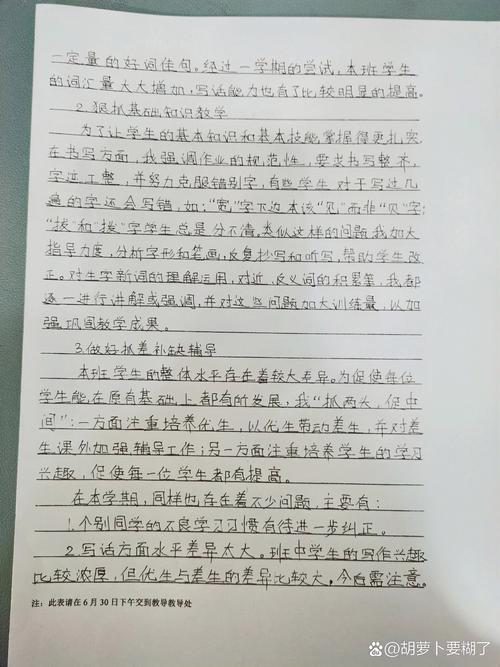 一定量的好词佳句。经过一学期的尝试，本班学生
的词汇量大大增加，写话能力也有了比较明显的提高。
2.狠抓基础知识教学
为了让学生的基本知识和基本技能掌握得更扎实，
在书写方面，我强调作业的规范性，要求书写整齐，
字迹工整，并努力克服错别字，有些学生对于写过几
遍的字还会写错，如："宽"字下边本该"见"而非"贝"字；
"拔"和"拨"字学生总是分不清。类似这样的问题我加大
指导力度，分析字形和笔画，反复抄写和听写，帮助学生改
正。对生字新词的理解运用，对近、反义词的积累等，我都
逐一进行讲解或强调，并对这些问题加大训练量，以加
强巩固教学成果。
3.做好抓差补缺辅导
本班学生的整体水平存在着较大差异。为促使每位
学生能在原有基础上都有所发展，我"抓两头，促中
间"：一方面注重培养优生，以优生带动差生，并对差
生课外加强辅导工作；另一方面注重培养学生的学习
兴趣，促使每一位学生都有提高。
在本学期，同样也存在着不少问题，主要有：
1.个别同学的不良学习习惯有待进一步纠正。
2.写话方面水平差异太大。班中学生的写作兴趣
比较浓厚，但优生与差生的差异比较大。今后需注意
注：此表请在6月30日下午交到教导教导处
Bai百家号/胡萝卜要糊了